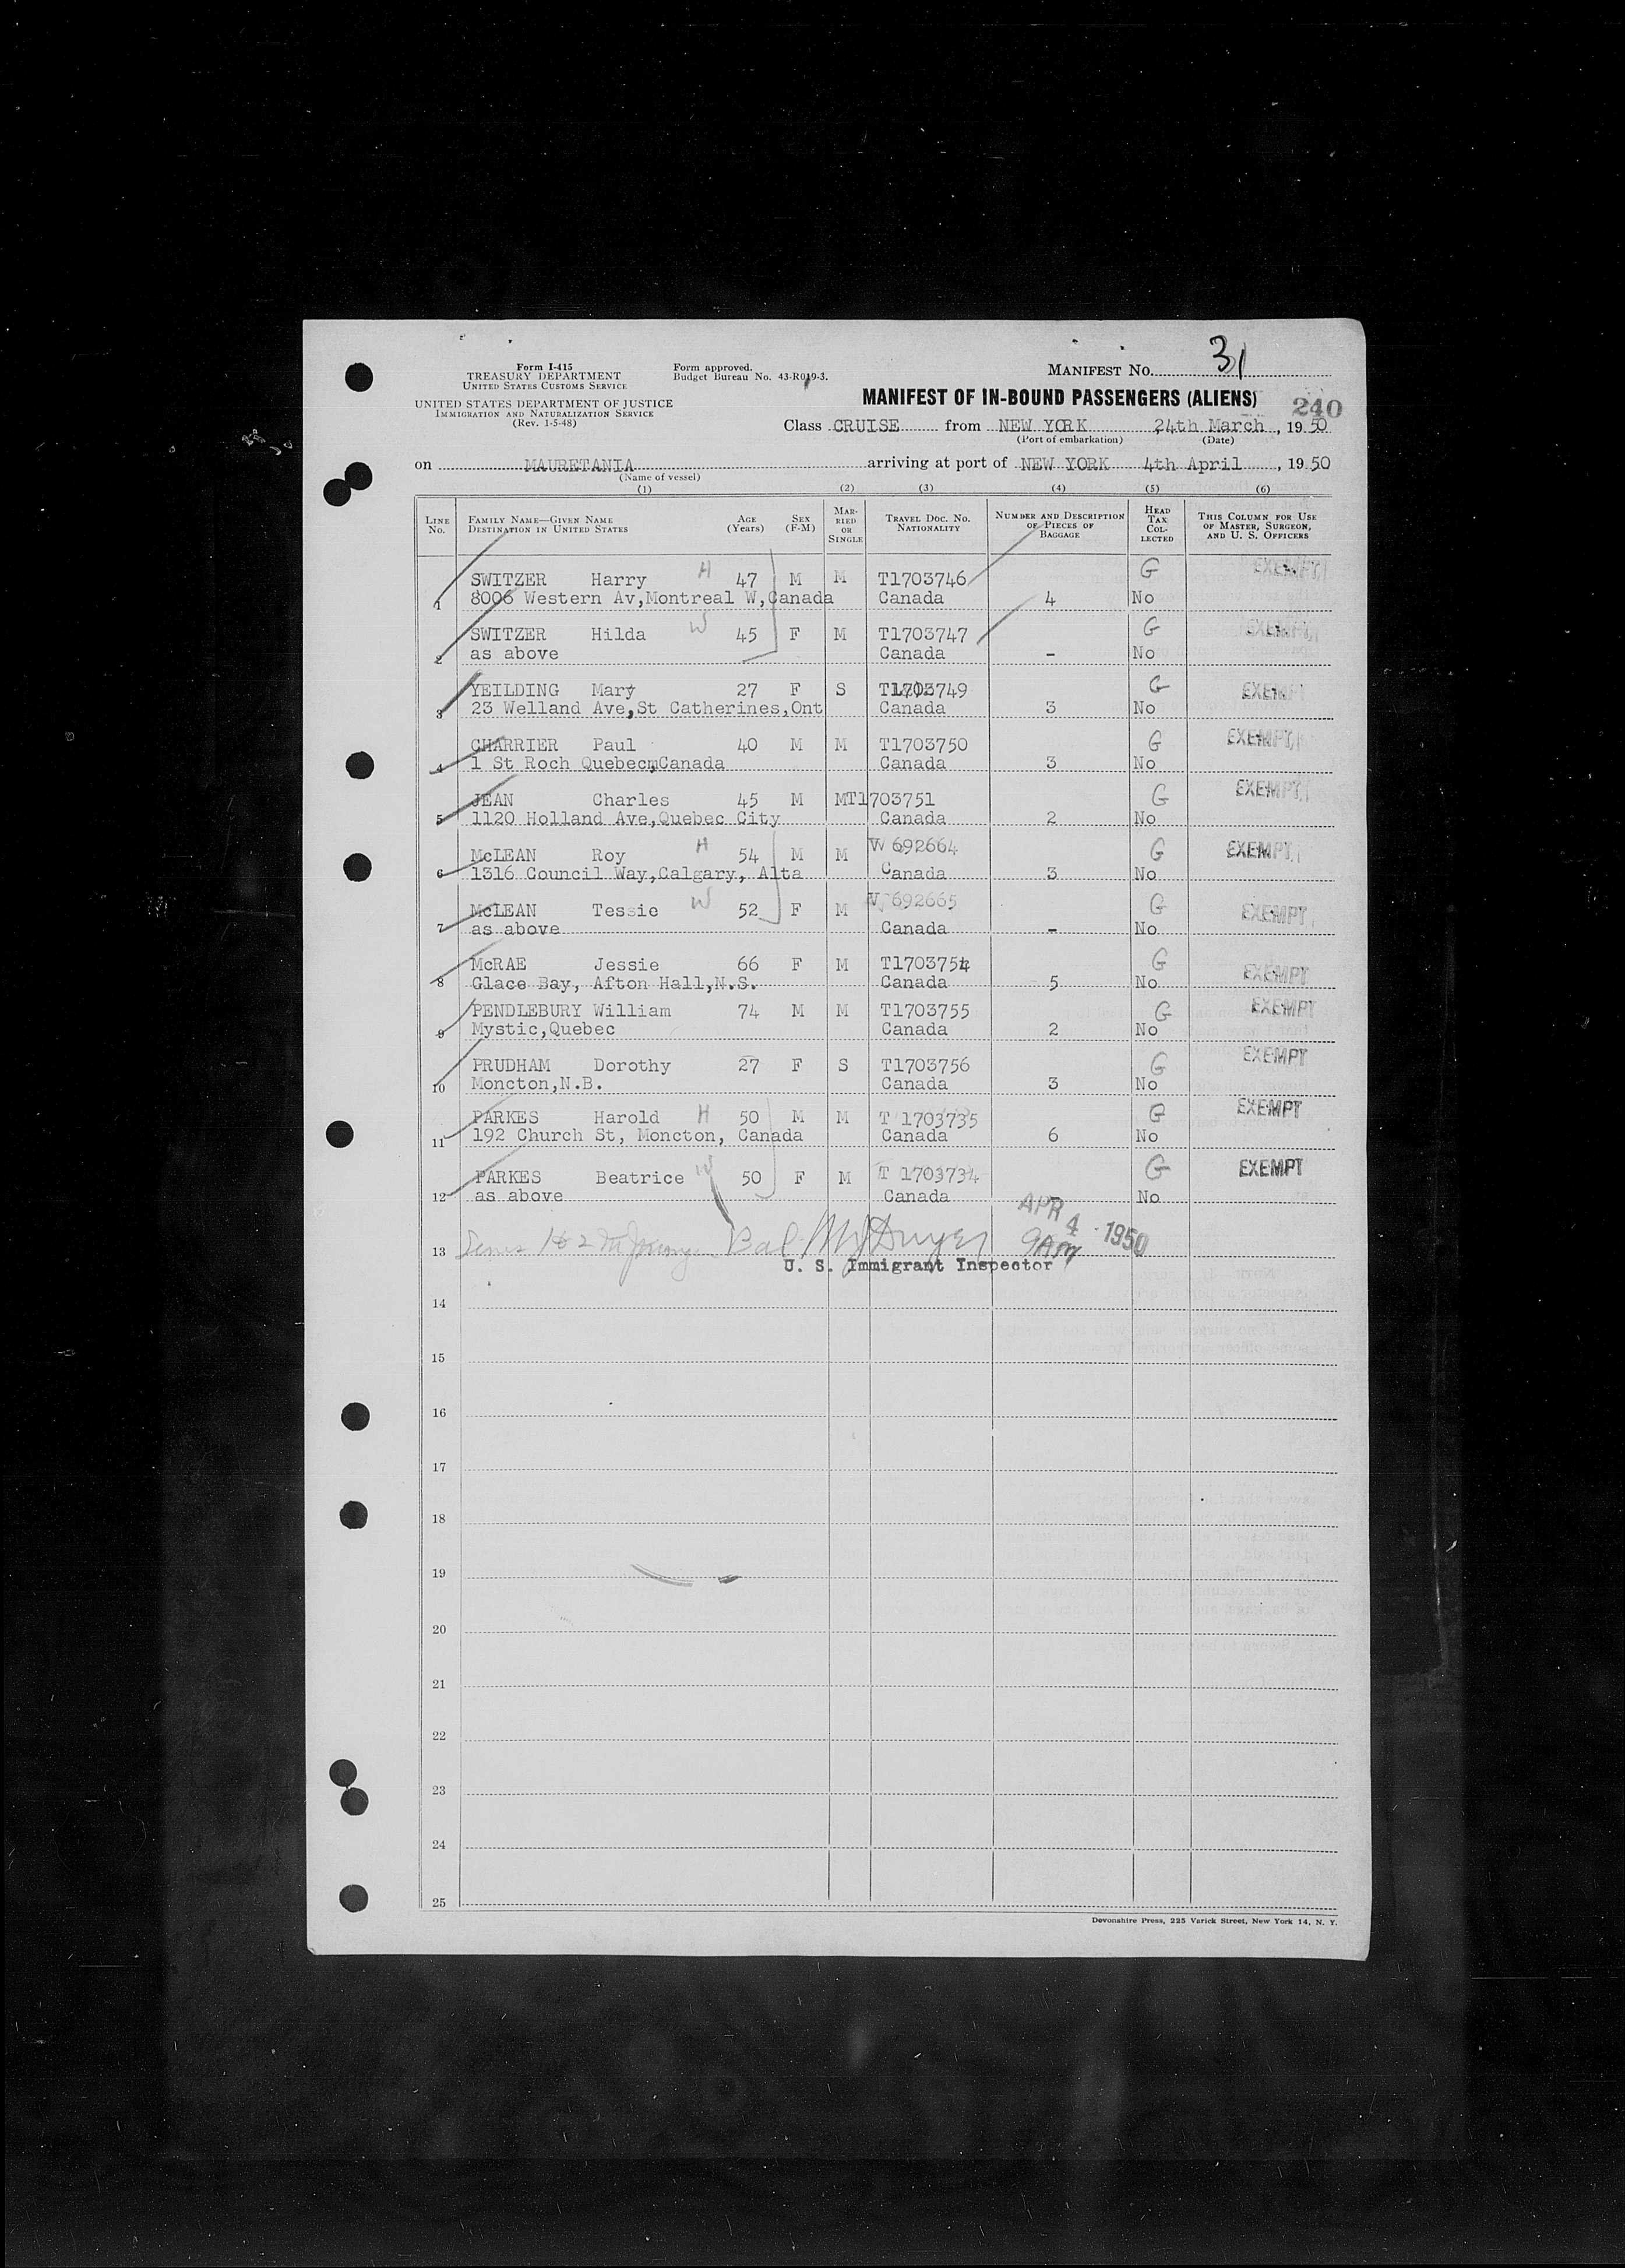 Form I-415
TREASURY DEPARTMENT
UNITED STATES CUSTOMS SERVICE
UNITED STATES DEPARTMENT OF JUSTICE
IMMIGRATION AND NATURALIZATION SERVICE
(Rev. 1-5-48)
Form approved.
Budget Bureau No. 43-R019-3.
MANIFEST NO. 31
MANIFEST OF IN-BOUND PASSENGERS (ALIENS)
240
Class CRUISE from NEW YORK 24th March, 1950
(Port of embarkation) (Date)
on MAURETANIA arriving at port of NEW YORK 4th April, 1950
(Name of vessel)
(1) (2) (3) (4) (5) (6)
LINE NO. FAMILY NAME—GIVEN NAME DESTINATION IN UNITED STATES AGE (Years) SEX (F-M) MARRIED OR SINGLE TRAVEL DOC. NO. NATIONALITY NUMBER AND DESCRIPTION OF PIECES OF BAGGAGE HEAD TAX COLLECTED THIS COLUMN FOR USE OF MASTER, SURGEON, AND U. S. OFFICERS
SWITZER Harry H 47 M M T1703746 G EXEMPT
1 8006 Western Av,Montreal W,Canada Canada 4 No
SWITZER Hilda W 45 F M T1703747 G EXEMPT
2 as above Canada - No
YEILDING Mary 27 F S T1703749 G EXEMPT
3 23 Welland Ave,St Catherines,Ont Canada 3 No
CHARRIER Paul 40 M M T1703750 G EXEMPT
4 1 St Roch Quebecm,Canada Canada 3 No
JEAN Charles 45 M MT1703751 G EXEMPT
5 1120 Holland Ave,Quebec City Canada 2 No
McLEAN Roy H 54 M M W 692664 G EXEMPT
6 1316 Council Way,Calgary, Alta Canada 3 No
McLEAN Tessie W 52 F M W 692665 G EXEMPT
7 as above Canada - No
McRAE Jessie 66 F M T1703754 G EXEMPT
8 Glace Bay, Afton Hall,N.S. Canada 5 No
PENDLEBURY William 74 M M T1703755 G EXEMPT
9 Mystic,Quebec Canada 2 No
PRUDHAM Dorothy 27 F S T1703756 G EXEMPT
10 Moncton,N.B. Canada 3 No
PARKES Harold H 50 M M T 1703735 G EXEMPT
11 192 Church St, Moncton, Canada Canada 6 No
PARKES Beatrice W 50 F M T 1703734 G EXEMPT
12 as above Canada - No
APR 4 - 1950
13 1 & 2 Bal 9AM
U. S. Immigrant Inspector
14
15
16
17
18
19
20
21
22
23
24
25
Devonshire Press, 225 Varick Street, New York 14, N. Y.